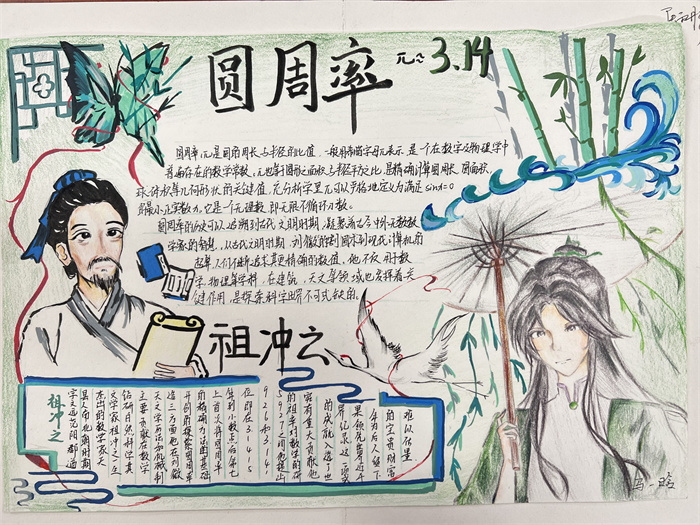 圆周率
π≈3.14
圆周率π是圆的周长与半径的比值，一般用希腊字母π表示，是一个在数学及物理学中
普遍存在的数学常数，π也等于圆形之面积与半径平方之比，是精确计算圆周长、圆面积
球体积等几何形状的关键值，充分析学里π可以严格地定义为满足sinx=0
的最小正实数x，它是一个无理数，即无限不循环小数。
圆周率的历史可以追朔到古代文明时期，凝聚着古今中外无数数
学家的智慧，从古代文明时期，刘徽的割圆术到现代计算机的
应用，人们不断追求更精确的数值，他不仅用于数
学、物理等学科，在建筑，天文等领域也发挥着关
键作用，是探索科学世界不可或缺的。
祖冲之
祖冲之
字文远，范阳郡遒
县人，南北朝时期
杰出的数学家、天
文学家，祖冲之一生
钻研自然科学，其
主要贡献在数学
天文学历法和机械制
造三方面，他在刘徽
开创的探索圆周率
的精确方法的基础
上，首次将圆周率
算到小数点后第七
位，即在3.1415
926和3.141
5927之间，他提出
的祖率对数学的研
究有重大贡献，他
的成就入选了世
界纪录，这一成
果领先世界近千
年，为后人留下
的宝贵财富
难以估量
马一晗